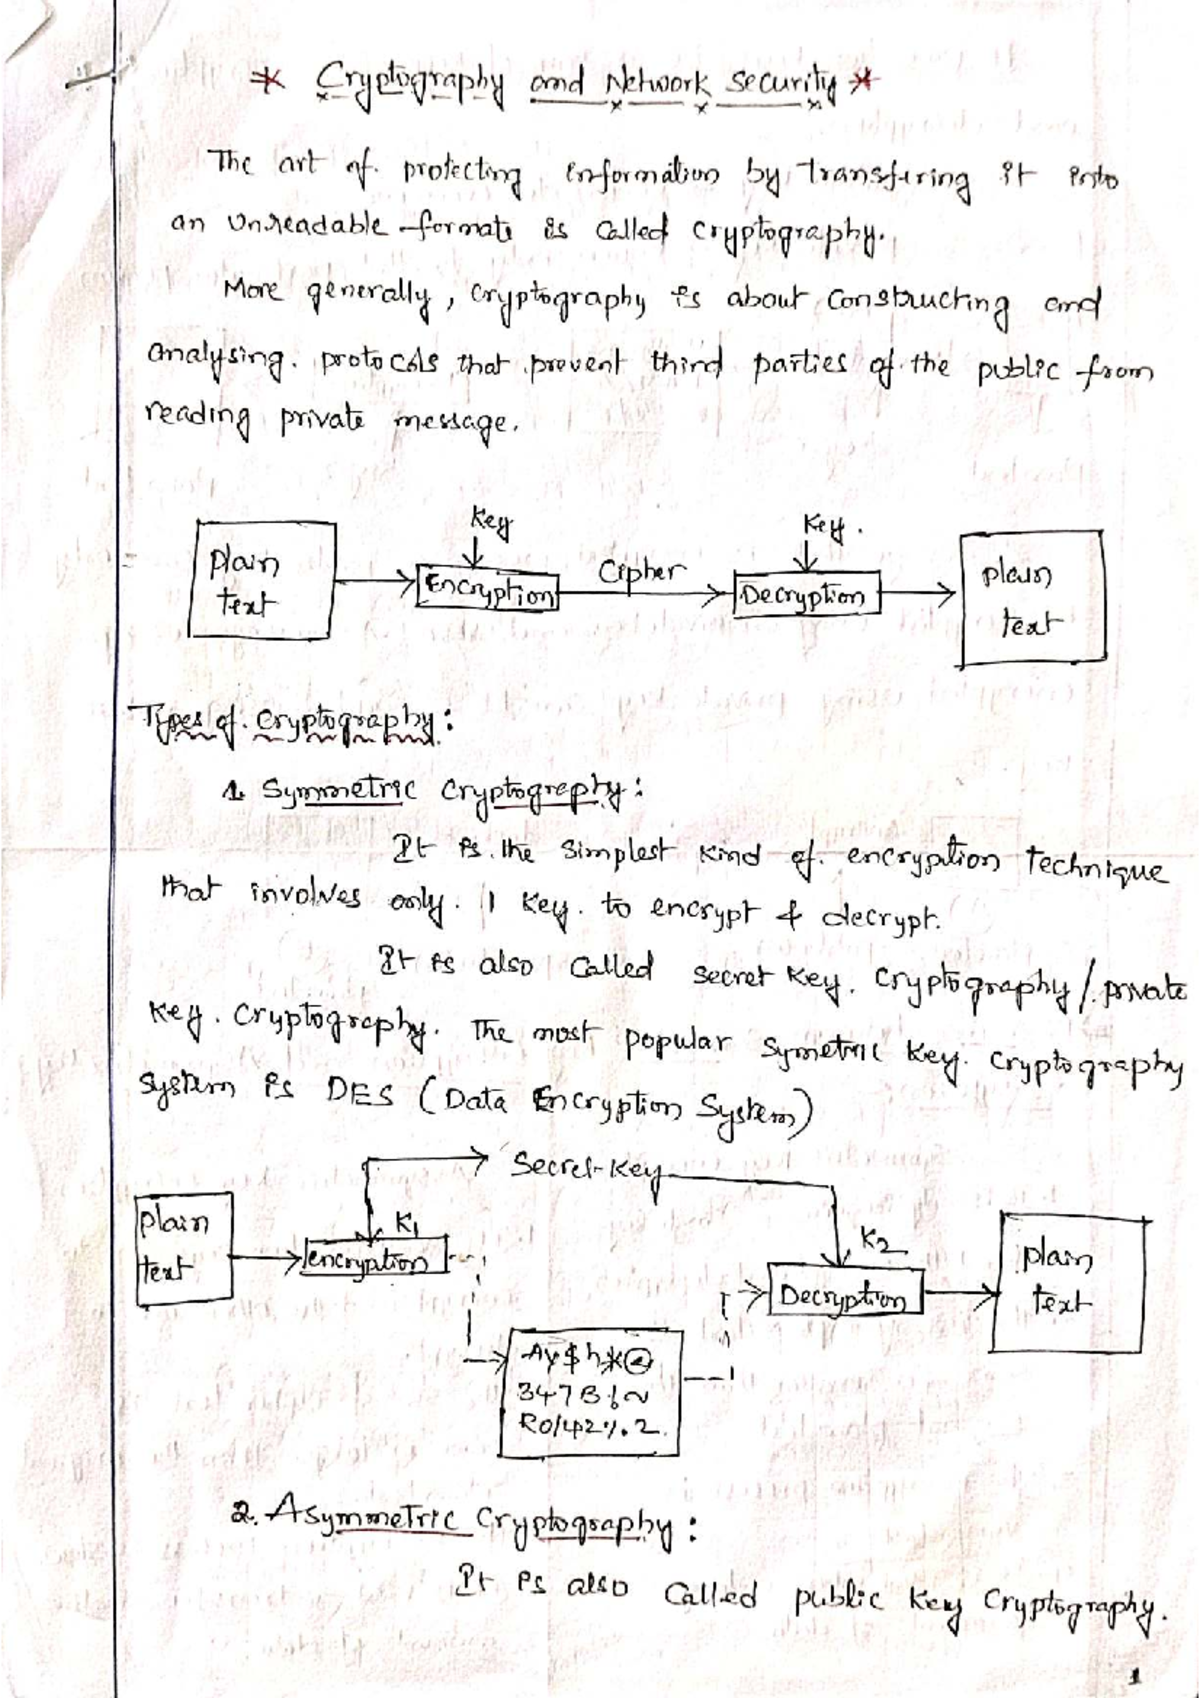 * Cryptography and Network security *
The art of. protecting information by transfering it into
an unreadable formate is called cryptography.
More generally, cryptography is about constructing and
analysing. protocols that prevent third parties of the public from
reading private message.
Key
Key.
Plain
text
Encryption
Cipher
Decryption
plain
text
Types of. cryptography:
1. Symmetric Cryptography:
It is. the simplest kind of. encryption technique
that involves only. 1 key. to encrypt & decrypt.
It is also called secret key. cryptography/private
key. cryptography. The most popular symetric key. cryptography
system is DES (Data Encryption System)
Secret-key
plain
text
K1
encryption
K2
Decryption
plain
text
Ay$h*@
347B%~
R0142%.2
2. Asymmetric Cryptography:
It is also called public key cryptography.
1